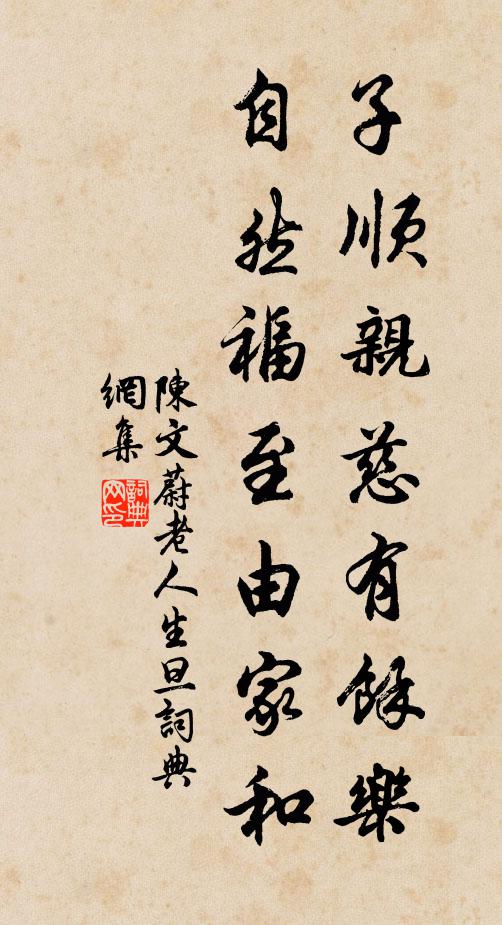 子順親慈有餘樂
自然福至由家和
陳文蔚老人生旦詞典
網集
詞典
网印